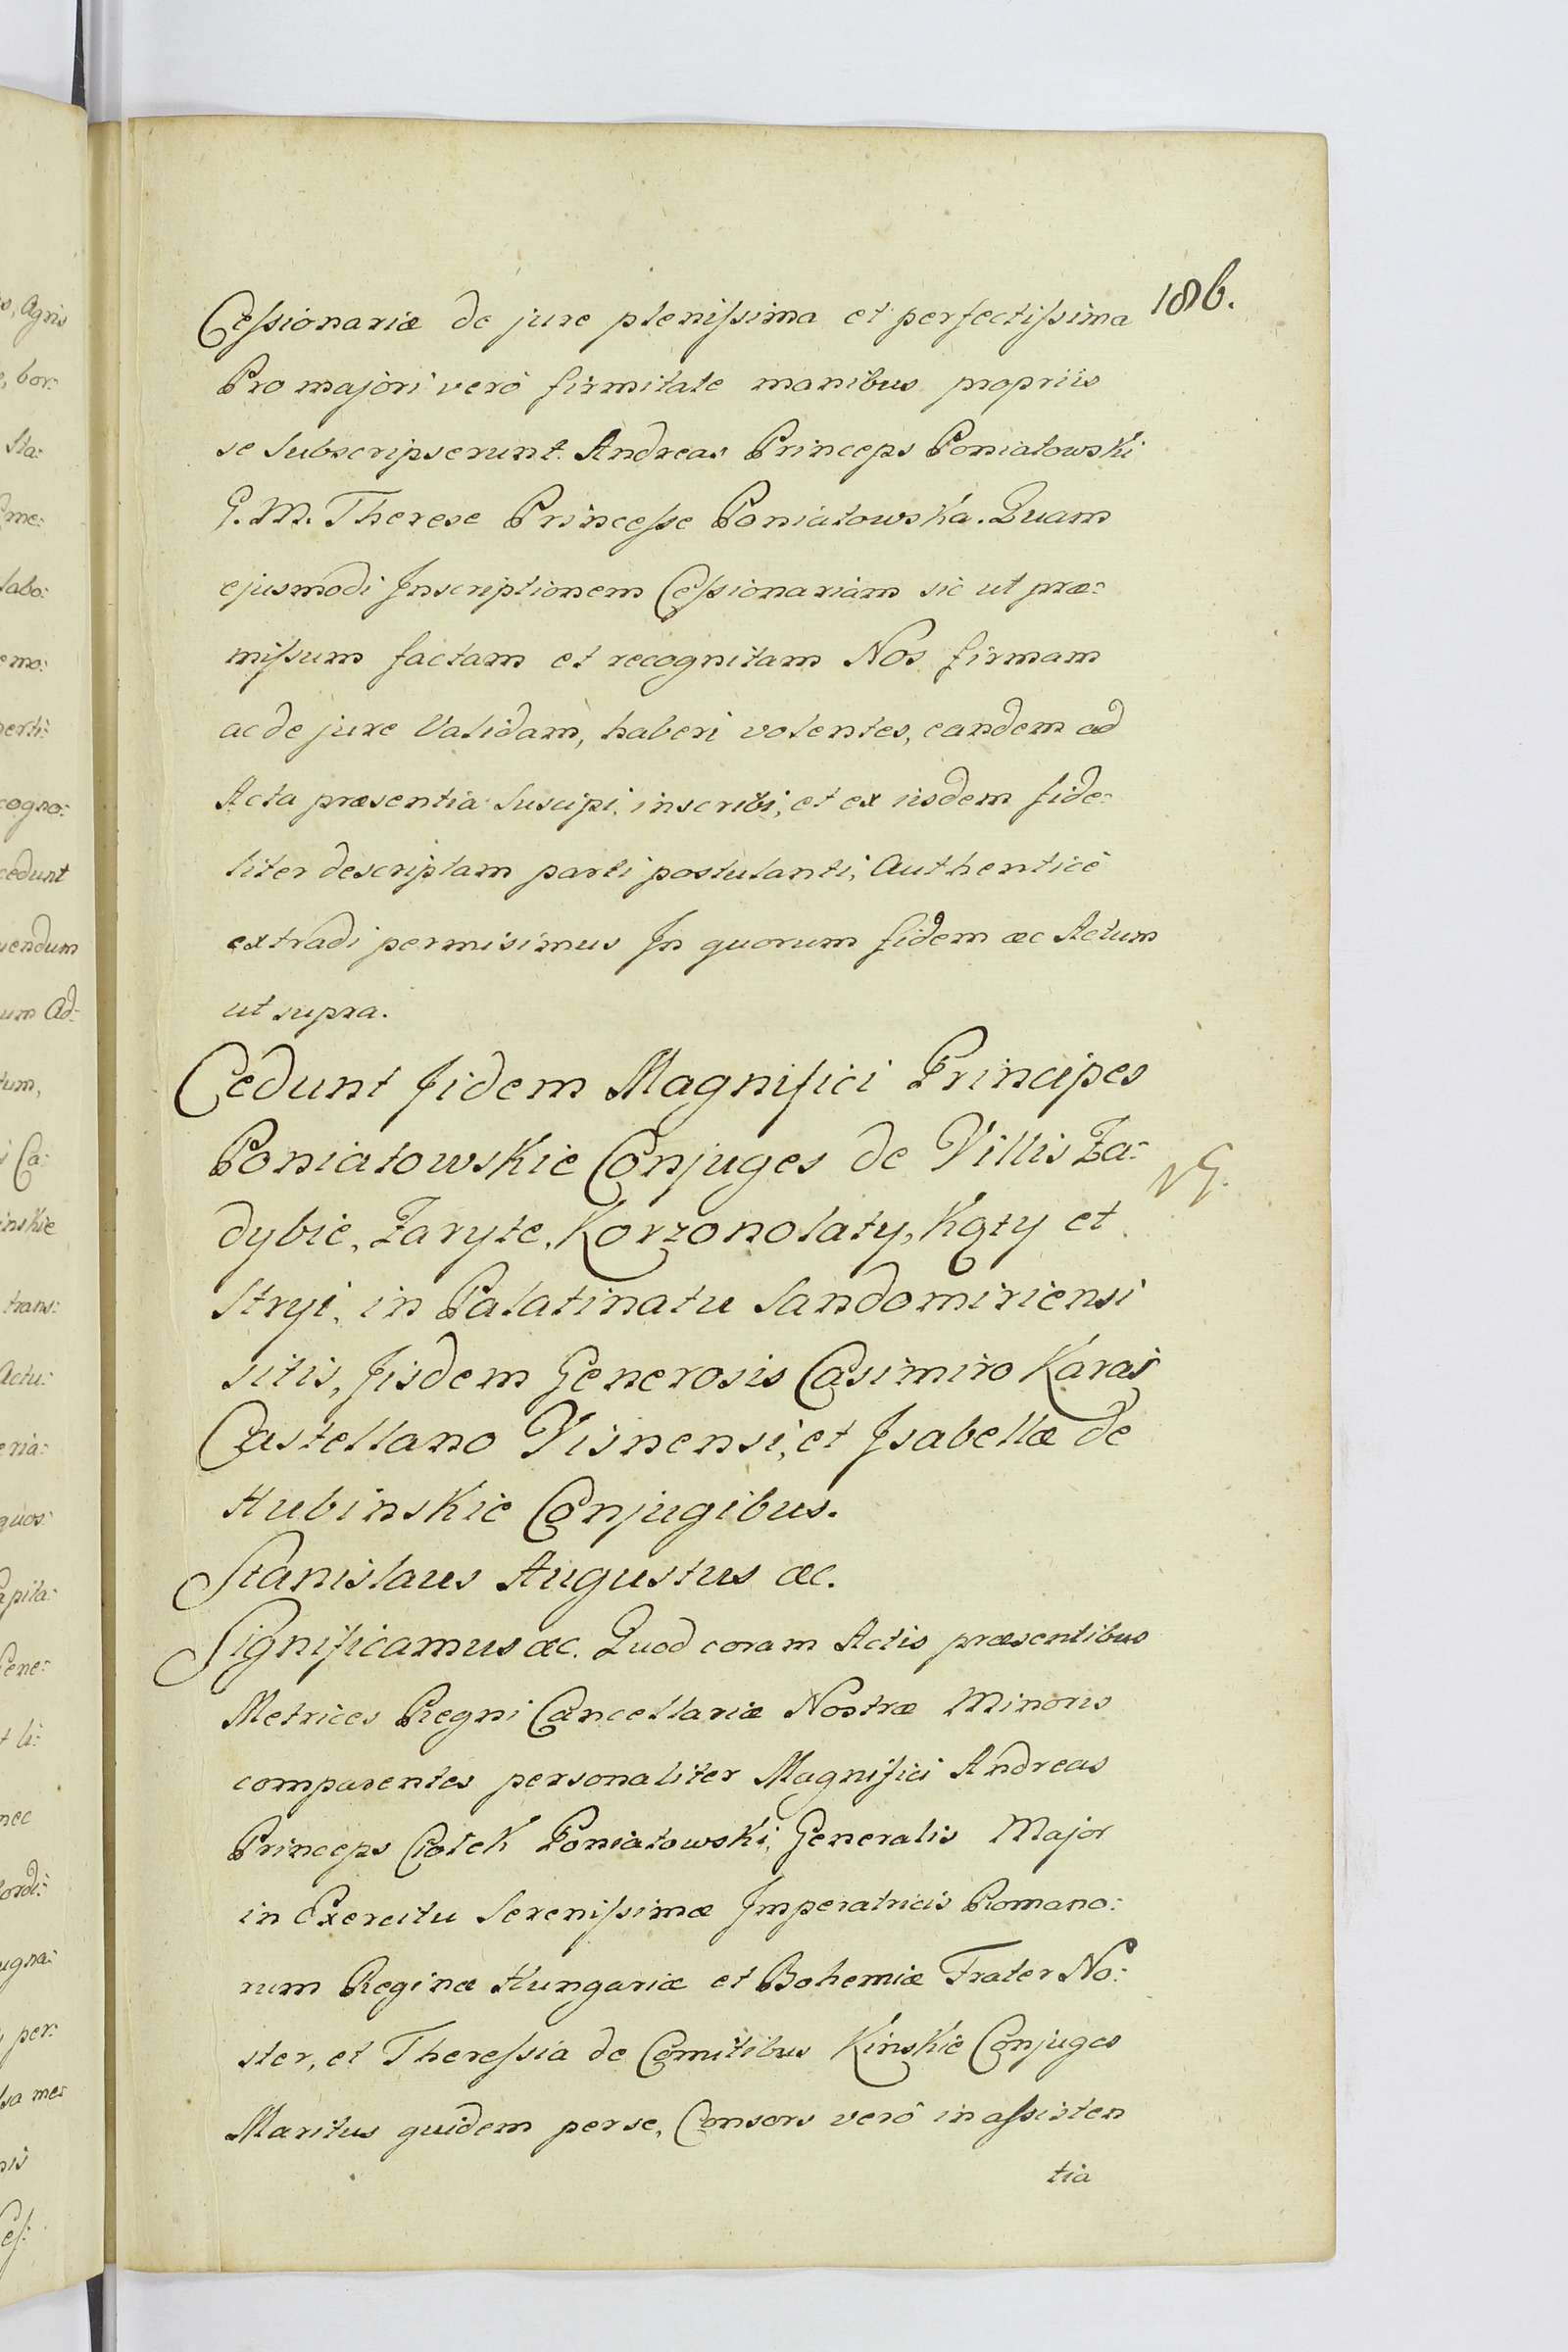 186.
Cessionariæ de jure plenissima et perfectissima
Pro majori verò firmitate manibus propriis
se subscripserunt. Andreas Princeps Poniatowski
G. M. Therese Princesse Poniatowska. Quam
ejusmodi Jnscriptionem Cessionariam sic ut præ:
missum factam et recognitam Nos firmam
ac de jure Validam, haberi volentes, eandem ad
Acta præsentia suscipi, inscribi, et ex iisdem fide:
liter descriptam parti postulanti, Authenticè
extradi permisimus Jn quorum fidem &c Actum
ut supra.
Cedunt Jidem Magnifici Principes
Poniatowskie Conjuges de Villis Za:
dybie, Zaryte, Korzonolaty, Kąty et
Stryi, in Palatinatu Sandomiriensi
sitis, Jisdem Generosis Casimiro Karaś
Castellano Visnensi, et Jsabellæ de
Hubinskie Conjugibus.
Stanislaus Augustus &c.
Significamus &c. Quod coram Actis præsentibus
Metrices Regni Cancellariæ Nostræ Minoris
comparentes personaliter Magnifici Andreas
Princeps Ciołek Poniatowski, Generalis Major
in Exercitu Serenissimæ Jmperatricis Romano:
rum Reginæ Hungariæ et Bohemiæ Frater No:
ster, et Theressia de Comitibus Kinskie Conjuges
Maritus quidem per se, Consors verò in assisten
tia
s, Agris
, bor:
Sta:
me:
labo:
emo:
perti:
cogno:
cedunt
uendum
um Ad:
tum,
i Ca:
inskie
trans:
Actu:
eria:
quos:
apita:
Gene:
t li:
nec
ordi:
ugna:
, per:
sa me:
nis